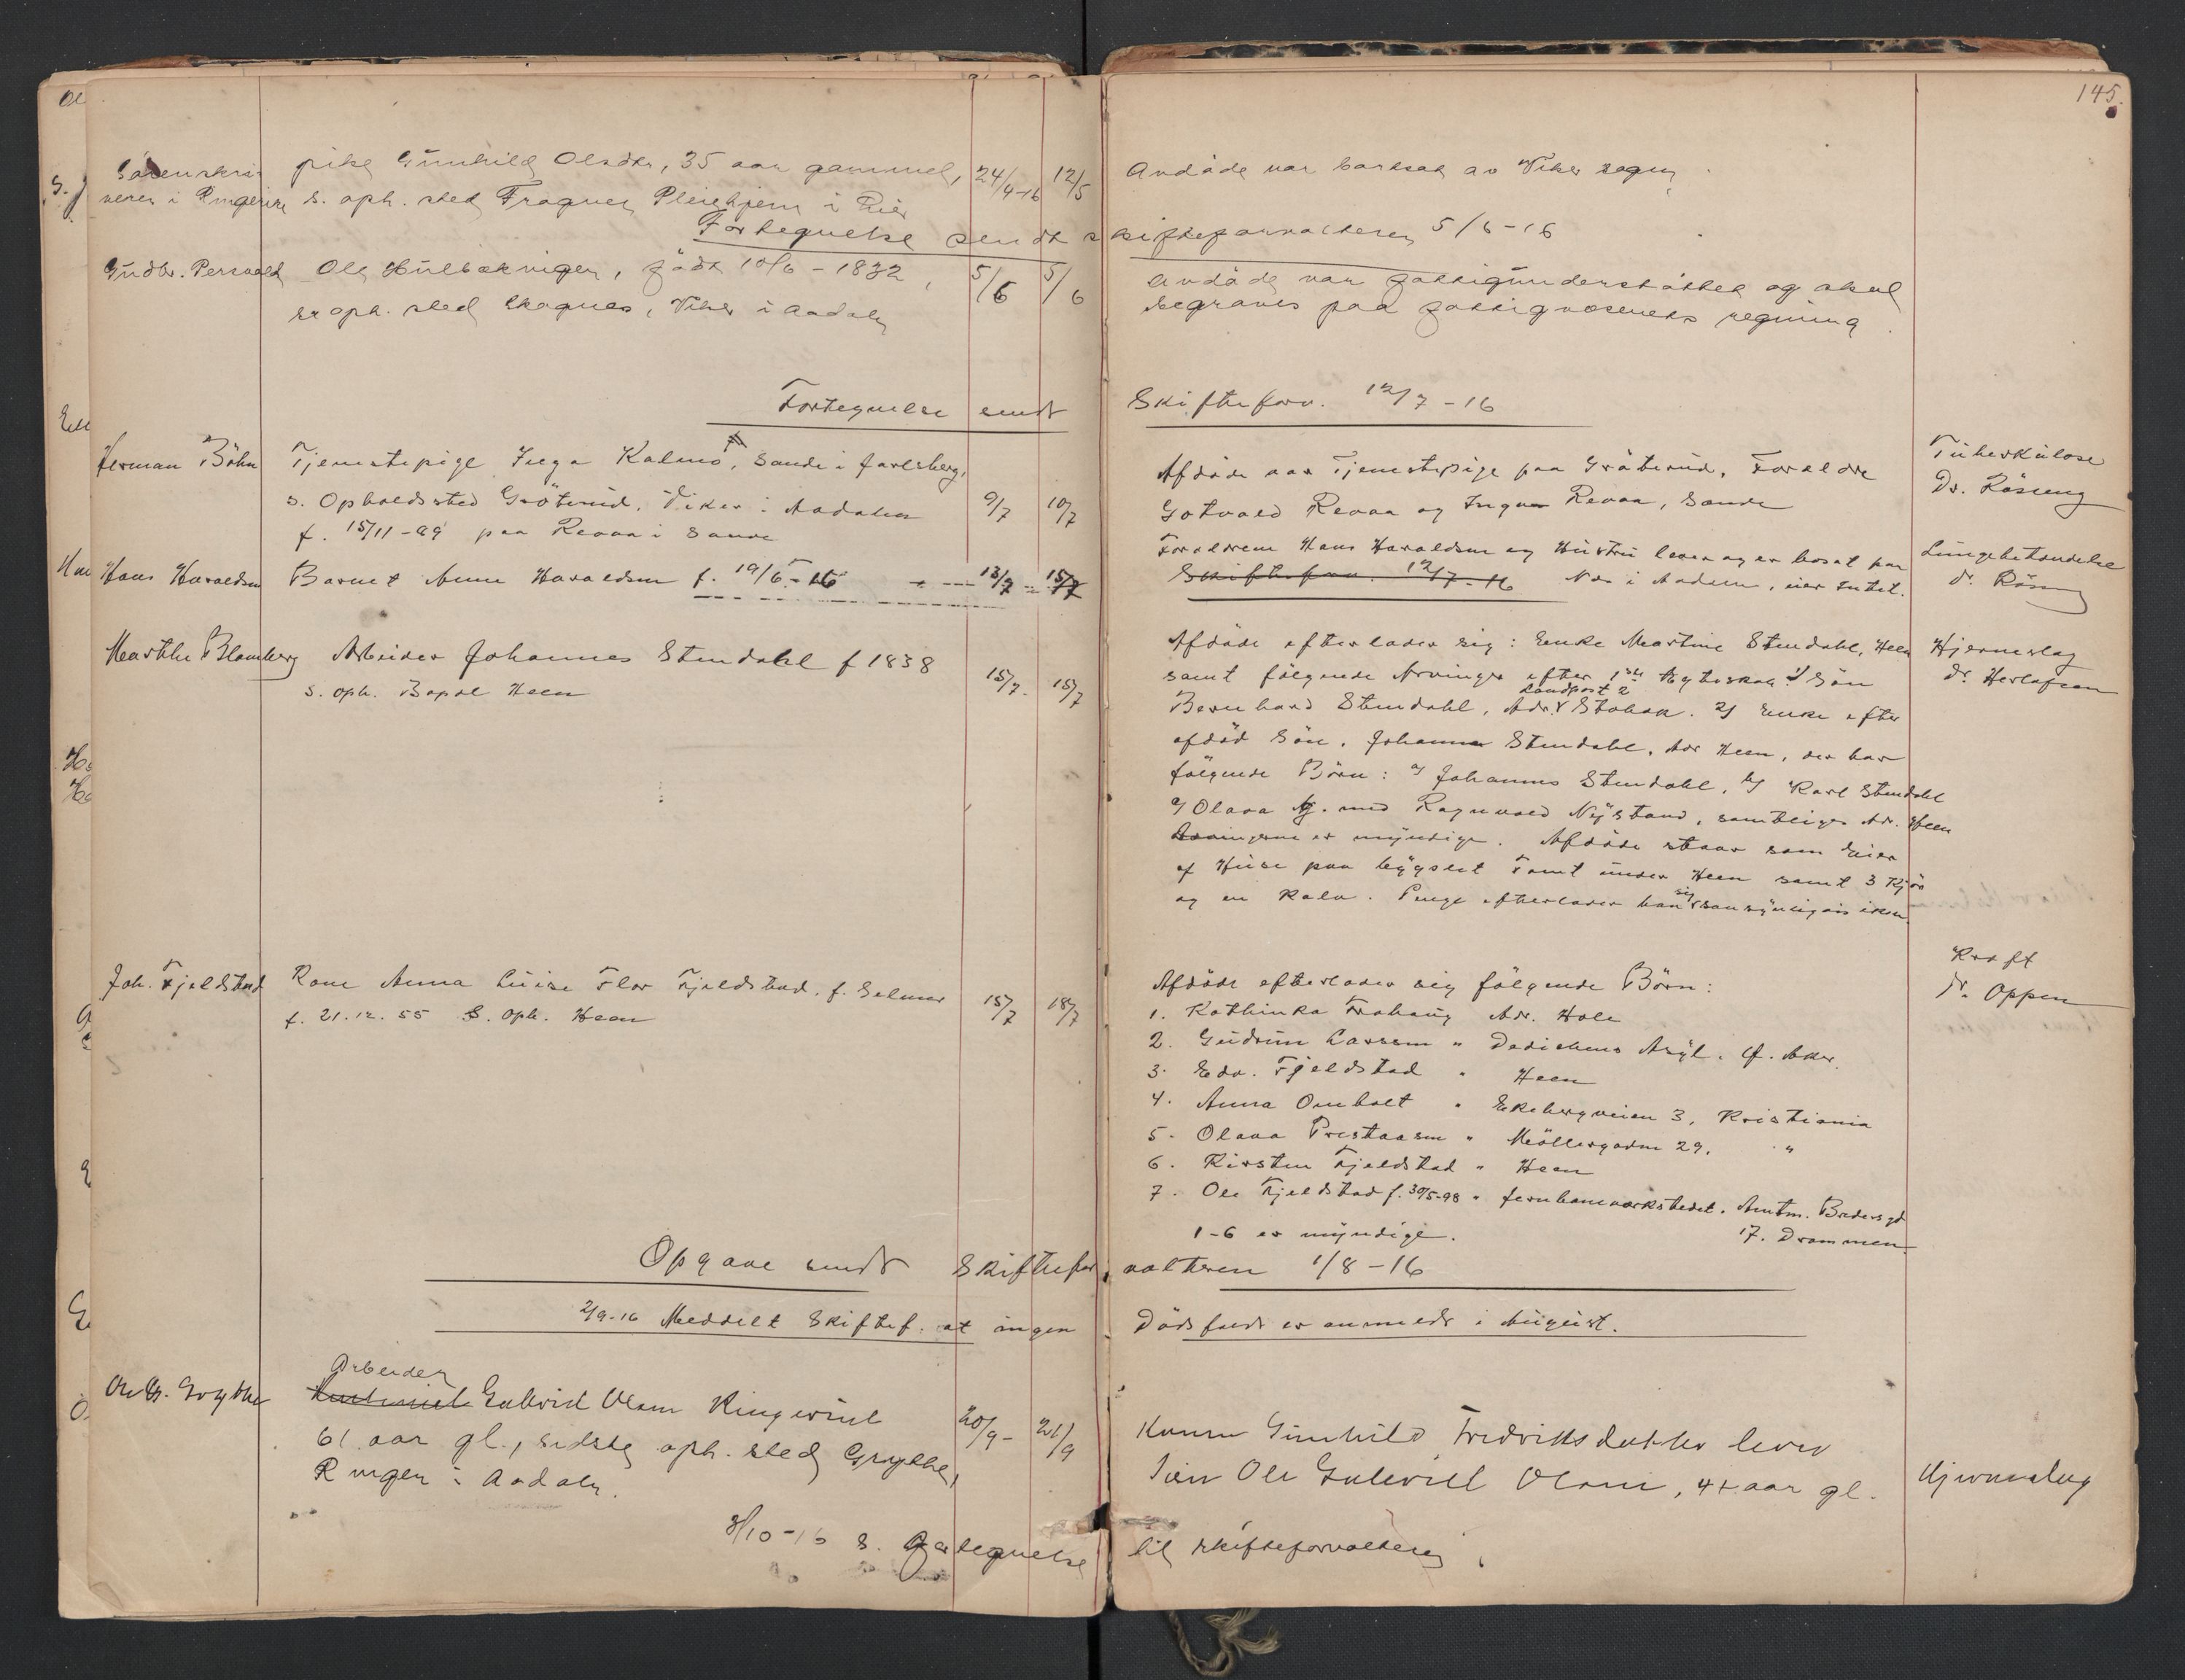 145.
Sorenskri
veren i Ringerike
pike Gunhild Olsdtr, 35 aar gammel,
s. oph. sted Frogner Pleiehjem i Lier
24/4-16 12/5
Avdöde var bortsat av Viker sogn
Fortegnelse sendt skifteforvalteren 5/6-16
Gudbr. Persvold
Ole Hulbakvigen, födt 10/6-1832,
sr oph. sted Skagnes, Viker i Aadalen
5/6 5/6
Avdöde var fattigunderstöttet og skal
begraves paa fattigvæsenets regning.
Fortegnelse sendt Skifteforv. 12/7-16
Herman Böhn
Tjenestepige Inga Kalmo, Sande i Jarlsberg,
s. Opholdssted Gröterud, Viker i Aadalen
f. 15/11-89 paa Revaa i Sande
9/7 10/7
Afdöde var Tjenestepige paa Gröterud. Forældre
Gotvald Revaa og Inga Revaa, Sande
Tuberkulose
Dr. Röseng
Hans Haraldsen
Barnet Anne Haraldsen f. 19/6-16 13/7 15/7
Forældrene Hans Haraldsen og Hustru lever og er bosat paa
Skifteforv. 12/7-16 Næs i Aadalen, eier Intet.
Lungebetændelse
dr. Röseng
Marthe Blomberg
Arbeider Johannes Stendahl f 1838
s. oph. Bopæl Heen
15/7. 15/7
Afdöde efterlader sig: Enke Martine Stendahl, Heen
samt fölgende Arvinger efter 1ste Ægteskab: 1) Sön
Bernhard Stendahl, Adr. Landpost 2 Stabæk. 2) Enke efter
afdöd Sön, Johanna Stendahl, Adr Heen, der har
fölgende Börn: a) Johannes Stendahl, b) Karl Stendahl
c) Olava g. med Ragnvald Nystand, samtlige Adr. Heen
Arvingerne er myndige. Afdöde staar som Eier
af Huse paa bygslet Tomt under Heen samt 3 Kjör
og en Kalv. Penge efterlader han sig sansynligvis ikke.
Hjerneslag
dr. Herlofsen
Joh. Fjeldstad
Kone Anna Luise Flor Fjeldstad, f. Selmer
f. 21.12.55 S. Oph. Heen
15/7 18/7
Afdöde efterlader sig fölgende Börn:
1. Kathinka Frohaug Adr. Hole
2. Gudrun Larssen " Dedichens Asyl. Ø. Aker.
3. Edv. Fjeldstad " Heen
4. Anna Omholt " Ekebergveien 3, Kristiania
5. Olava Prestaasen " Möllergaden 29, "
6. Kirsten Fjeldstad " Heen
7. Ole Fjeldstad f. 30/5-98 " Jernbaneverkstedet, Amtm. Bredersgd
17. Drammen
1-6 er myndige.
Kræft
dr. Oppen
Opgave sendt Skifteforvalteren 1/8-16
2/9-16 Meddelt Skiftef. at ingen Dödsfald er anmeldt i August.
Ole G. Grythe
Arbeider
Gulbrand Olsen Ringerud
61 aar gl., sidste oph. sted Grythe,
Ringer i Aadalen.
20/9- 21/9
Konen Gunhild Fredriksdatter lever
Sön Ole Gulbrand Olsen, 4 aar gl.
Hjerneslag
3/10-16 s. Fortegnelse til skifteforvalteren